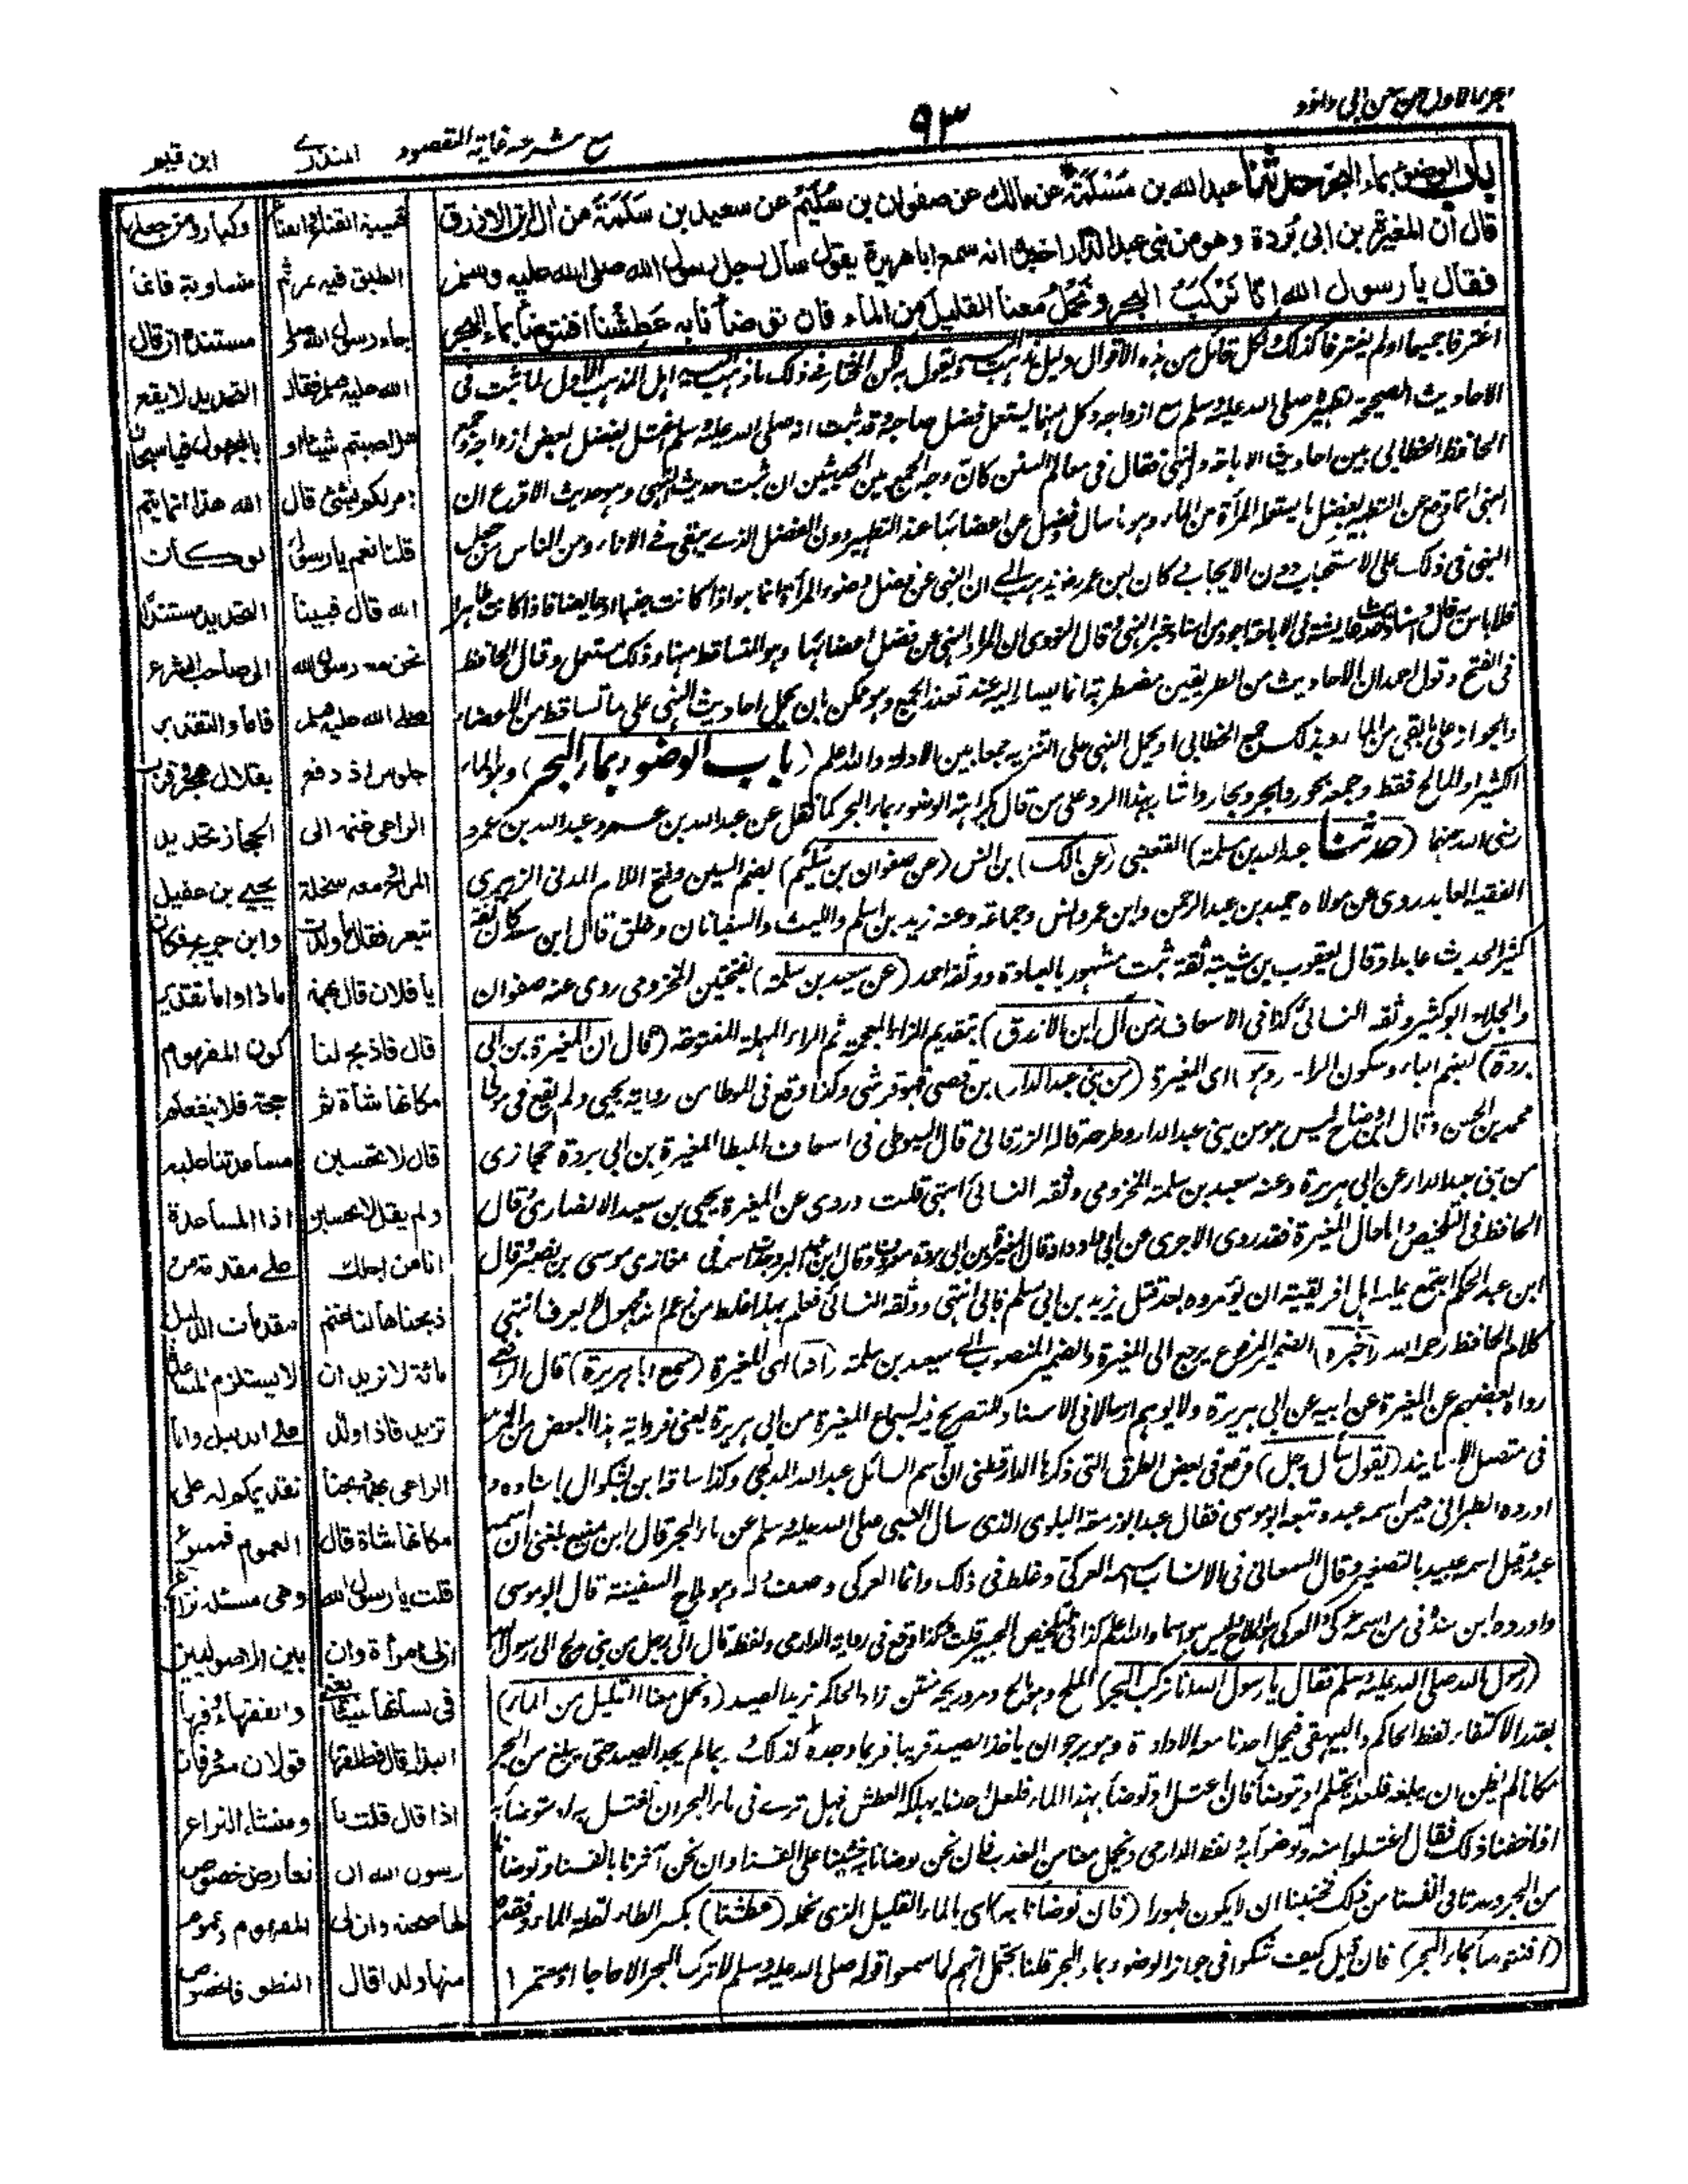 الجزء الاول من سنن ابی داؤد
٩٣
مع شرحه غاية المقصود
المنذری
ابن قیم
باب الوضوء بماء البحر حدثنا عبد الله بن مَسْلَمَة عن مالك عن صفوان بن سُلَيْم عن سعيد بن سَلَمَة من آل ابن الازرق
قال ان المغيرة بن ابى بُردة وهو من بنى عبد الدار اخبره انه سمع ابا هريرة يقول سأل رجل رسول الله صلى الله عليه وسلم
فقال يا رسول الله انا نَركَبُ البحر ونحمل معنا القليل من الماء فان توضأنا به عَطِشْنا افنتوضأ بماء البحر
اغترفا جميعا اولم يغترفا كذلك لكل قائل من هذه الاقوال دليل يذهب اليه ويقول به لكن المختار فى ذلك ما ذهب اليه اهل المذهب الاول لما ثبت فى
الاحاديث الصحيحة تطهيره صلى الله عليه وسلم مع ازواجه وكل منهما يستعمل فضل صاحبه وقد ثبت انه صلى الله عليه وسلم اغتسل بفضل بعض ازواجه وجمع
الحافظ الخطابى بين احاديث الاباحة والنهى فقال فى معالم السنن كان وجه الجمع بين الحديثين ان ثبت حديث النهى وهو حديث الاقرع ان
النهى انما وقع عن التطهير بفضل ما يستعمله المرأة من الماء وهو ما سال وفضل عن اعضائها عند التطهير دون الفضل الذى يبقى فى الاناء ومن الناس من جعل
النهى فى ذلك على الاستحباب دون الايجاب وكان ابن عمر رضه يذهب الى ان النهى عن فضل وضوء المرأة انما هو اذا كانت جنبا او حايضا فاذا كانت طاهرا
فلا باس به قال واسناد حديث عايشة فى الاباحة اجود من اسناد خبر النهى وقال النووى ان المراد النهى عن فضل اعضائها وهو المتساقط منها وذلك مستعمل وقال الحافظ
فى الفتح وقول احمد ان الاحاديث من الطريقين مضطربة انما يصار اليه عند تعذر الجمع وهو ممكن بان يحمل احاديث النهى على ما تساقط من الاعضاء
والجواز على ما بقى من الماء وبذلك جمع الخطابى او يحمل النهى على التنزيه جمعا بين الادلة والله اعلم (باب الوضوء بماء البحر) وهو الماء
الكثير او المالح فقط وجمعه بحور وابحر وبحار واشار بهذا الرد على من قال بكراهة الوضوء بماء البحر كما نقل عن عبد الله بن عمر وعبد الله بن عمرو
رضى الله عنهما (حدثنا عبد الله بن سلمة) القعنبى (عن مالك) بن انس (عن صفوان بن سليم) بضم السين وفتح اللام المدنى الزهرى
الفقيه العابد روى عن مولاه حميد بن عبد الرحمن وابن عمر وانس وجماعة وعنه زيد بن اسلم والليث والسفيانان وخلق قال ابن سعد كان ثقة
كثير الحديث عابدا وقال يعقوب بن شيبة ثقة ثبت مشهور بالعبادة ووثقه احمد (عن سعيد بن سلمة) بفتحتين المخزومى روى عنه صفوان
والجلاح ابو كثير وثقه النسائى كذا فى الاسعاف (من آل ابن الازرق) بتقديم الزاء المعجمة ثم الراء المهملة المفتوحة (قال ان المغيرة بن ابى
بردة) بضم الباء وسكون الراء (وهو) اى المغيرة (من بنى عبد الدار) بن قصى فهو قرشى وكذا وقع فى الموطا من رواية يحيى ولم يقع فى موطا
محمد بن الحسن وقال ابن وضاح ليس هو من بنى عبد الدار وطرحه قاله الزرقانى قال السيوطى فى اسعاف المبطا المغيرة بن ابى بردة حجازى
من بنى عبد الدار عن ابى هريرة وعنه سعيد بن سلمة المخزومى وثقه النسائى انتهى قلت وروى عن المغيرة يحيى بن سعيد الانصارى وقال
الحافظ فى التلخيص واما حال المغيرة فقد روى الاجرى عن ابى داود انه قال المغيرة بن ابى بردة معروف وقال ابن عبد البر وجدت اسمه فى مغازى موسى بن نصير وقال
ابن عبد الحكم اجتمع عليه اهل افريقية ان يؤمروه بعد قتل يزيد بن ابى مسلم فابى انتهى ووثقه النسائى فعلم بهذا غلط من زعم انه مجهول لا يعرف انتهى
كلام الحافظ رحمه الله (اخبره) الضمير المرفوع يرجع الى المغيرة والضمير المنصوب الى سعيد بن سلمة (انه) اى المغيرة (سمع ابا هريرة) قال الرافعى
رواه بعضهم عن المغيرة عن ابيه عن ابى هريرة ولا يوهم ارسالا فى الاسناد للتصريح فيه بسماع المغيرة من ابى هريرة يعنى فرواية هذا البعض من المزيد
فى متصل الاسانيد (يقول سأل رجل) وقع فى بعض الطرق التى ذكرها الدارقطنى ان اسم السائل عبد الله المدلجى وكذا ساقه ابن بشكوال باسناده و
اورده الطبرانى فيمن اسمه عبد وتبعه ابو موسى فقال عبد ابو زمعة البلوى الذى سال النبى صلى الله عليه وسلم عن ماء البحر قال ابن منيع بلغنى ان اسمه
عبد وقيل اسمه عبيد بالتصغير وقال السمعانى فى الانساب اسمه العركى وغلط فى ذلك وانما العركى وصف له وهو ملاح السفينة قال ابو موسى
واورده ابن مندة فى من اسمه عركى والعركى هو الملاح ليس هو اسما والله اعلم كذا فى تلخيص الحبير قلت هكذا وقع فى رواية الدارمى ولفظه قال اتى رجل من بنى مدلج الى رسول الله
(رسول الله صلى الله عليه وسلم فقال يا رسول الله انا نركب البحر) الملح وهو مالح ومر وريحه منتن زاد الحاكم نريد الصيد (ونحمل معنا القليل من الماء)
بقدر الاكتفاء لفظ الحاكم والبيهقى فيحمل احدنا معه الاداوة وهو يرجو ان ياخذ الصيد قريبا فربما وجده كذلك وربما لم يجد الصيد حتى يبلغ من البحر
مكانا لم يظن ان يبلغه فلعله يحتلم او يتوضأ فان اغتسل او توضأ بهذا الماء فلعل احدنا يهلكه العطش فهل ترى فى ماء البحر ان نغتسل به او نتوضأ به
اذا خفنا ذلك فقال اغتسلوا منه وتوضؤا به لفظ الدارمى ونحمل معنا من العذب فان نحن توضأنا به خشينا على انفسنا وان نحن آثرنا بانفسنا وتوضأنا
من البحر وجدنا فى انفسنا من ذلك فخشينا ان لا يكون طهورا (فان توضأنا به) اى بالماء القليل الذى نحمله (عطشنا) بكسر الطاء لقلة الماء وفقده
(افنتوضأ بماء البحر) فان قيل كيف شكوا فى جواز الوضوء بماء البحر قلنا يحتمل انهم لما سمعوا قوله صلى الله عليه وسلم لا تركب البحر الا حاجا او معتمرا
الطبق فيه تمر ثم
جاء رسول الله صلى
الله عليه وسلم فقال
هل اصبتم شيئا او
امر لكم بشئ قال
قلنا نعم يا رسول
الله قال فبينا
نحن مع رسول الله
صلى الله عليه وسلم
جلوس اذ دفع
الراعى غنمه الى
المراح ومعه سخلة
تيعر فقال ما ولدت
يا فلان قال بهمة
قال فاذبح لنا
مكانها شاة ثم
قال لا تحسبن
ولم يقل لا تحسبن
انا من اجلك
ذبحناها لنا غنم
مائة لا نريد ان
تزيد فاذا ولد
الراعى بهمة ذبحنا
مكانها شاة قال
قلت يا رسول الله
ان لى امرأة وان
فى لسانها شيئا
البذاء قال فطلقها
اذا قال قلت يا
رسول الله ان
لها صحبة وان لى
منها ولدا قال
وكبار ومن جعلها
متساوية فانما
مستنده ان قال
التحديد لا يقع
بالمجهول فيا سبحان
الله هذا انما يتم
لو كان
التحديد مستندا
الى صاحب الشرع
فاما والتقدير
بقلال هجر وقرب
الحجاز تحديد
يحيى بن عقيل
وابن جريج فكان
ماذا واما تقدير
كون المفهوم
حجة فلا ينفعكم
مساعدتنا عليه
اذ المساعدة
على مقدمة من
مقدمات الدليل
لا يستلزم المساعدة
على الدليل واما
تقديمكم له على
العموم فممنوع
وهى مسئلة نزاع
بين الاصوليين
والفقهاء وفيها
قولان معروفان
ومنشاء النزاع
تعارض خصوص
المفهوم وعموم
المنطوق فالخصوص